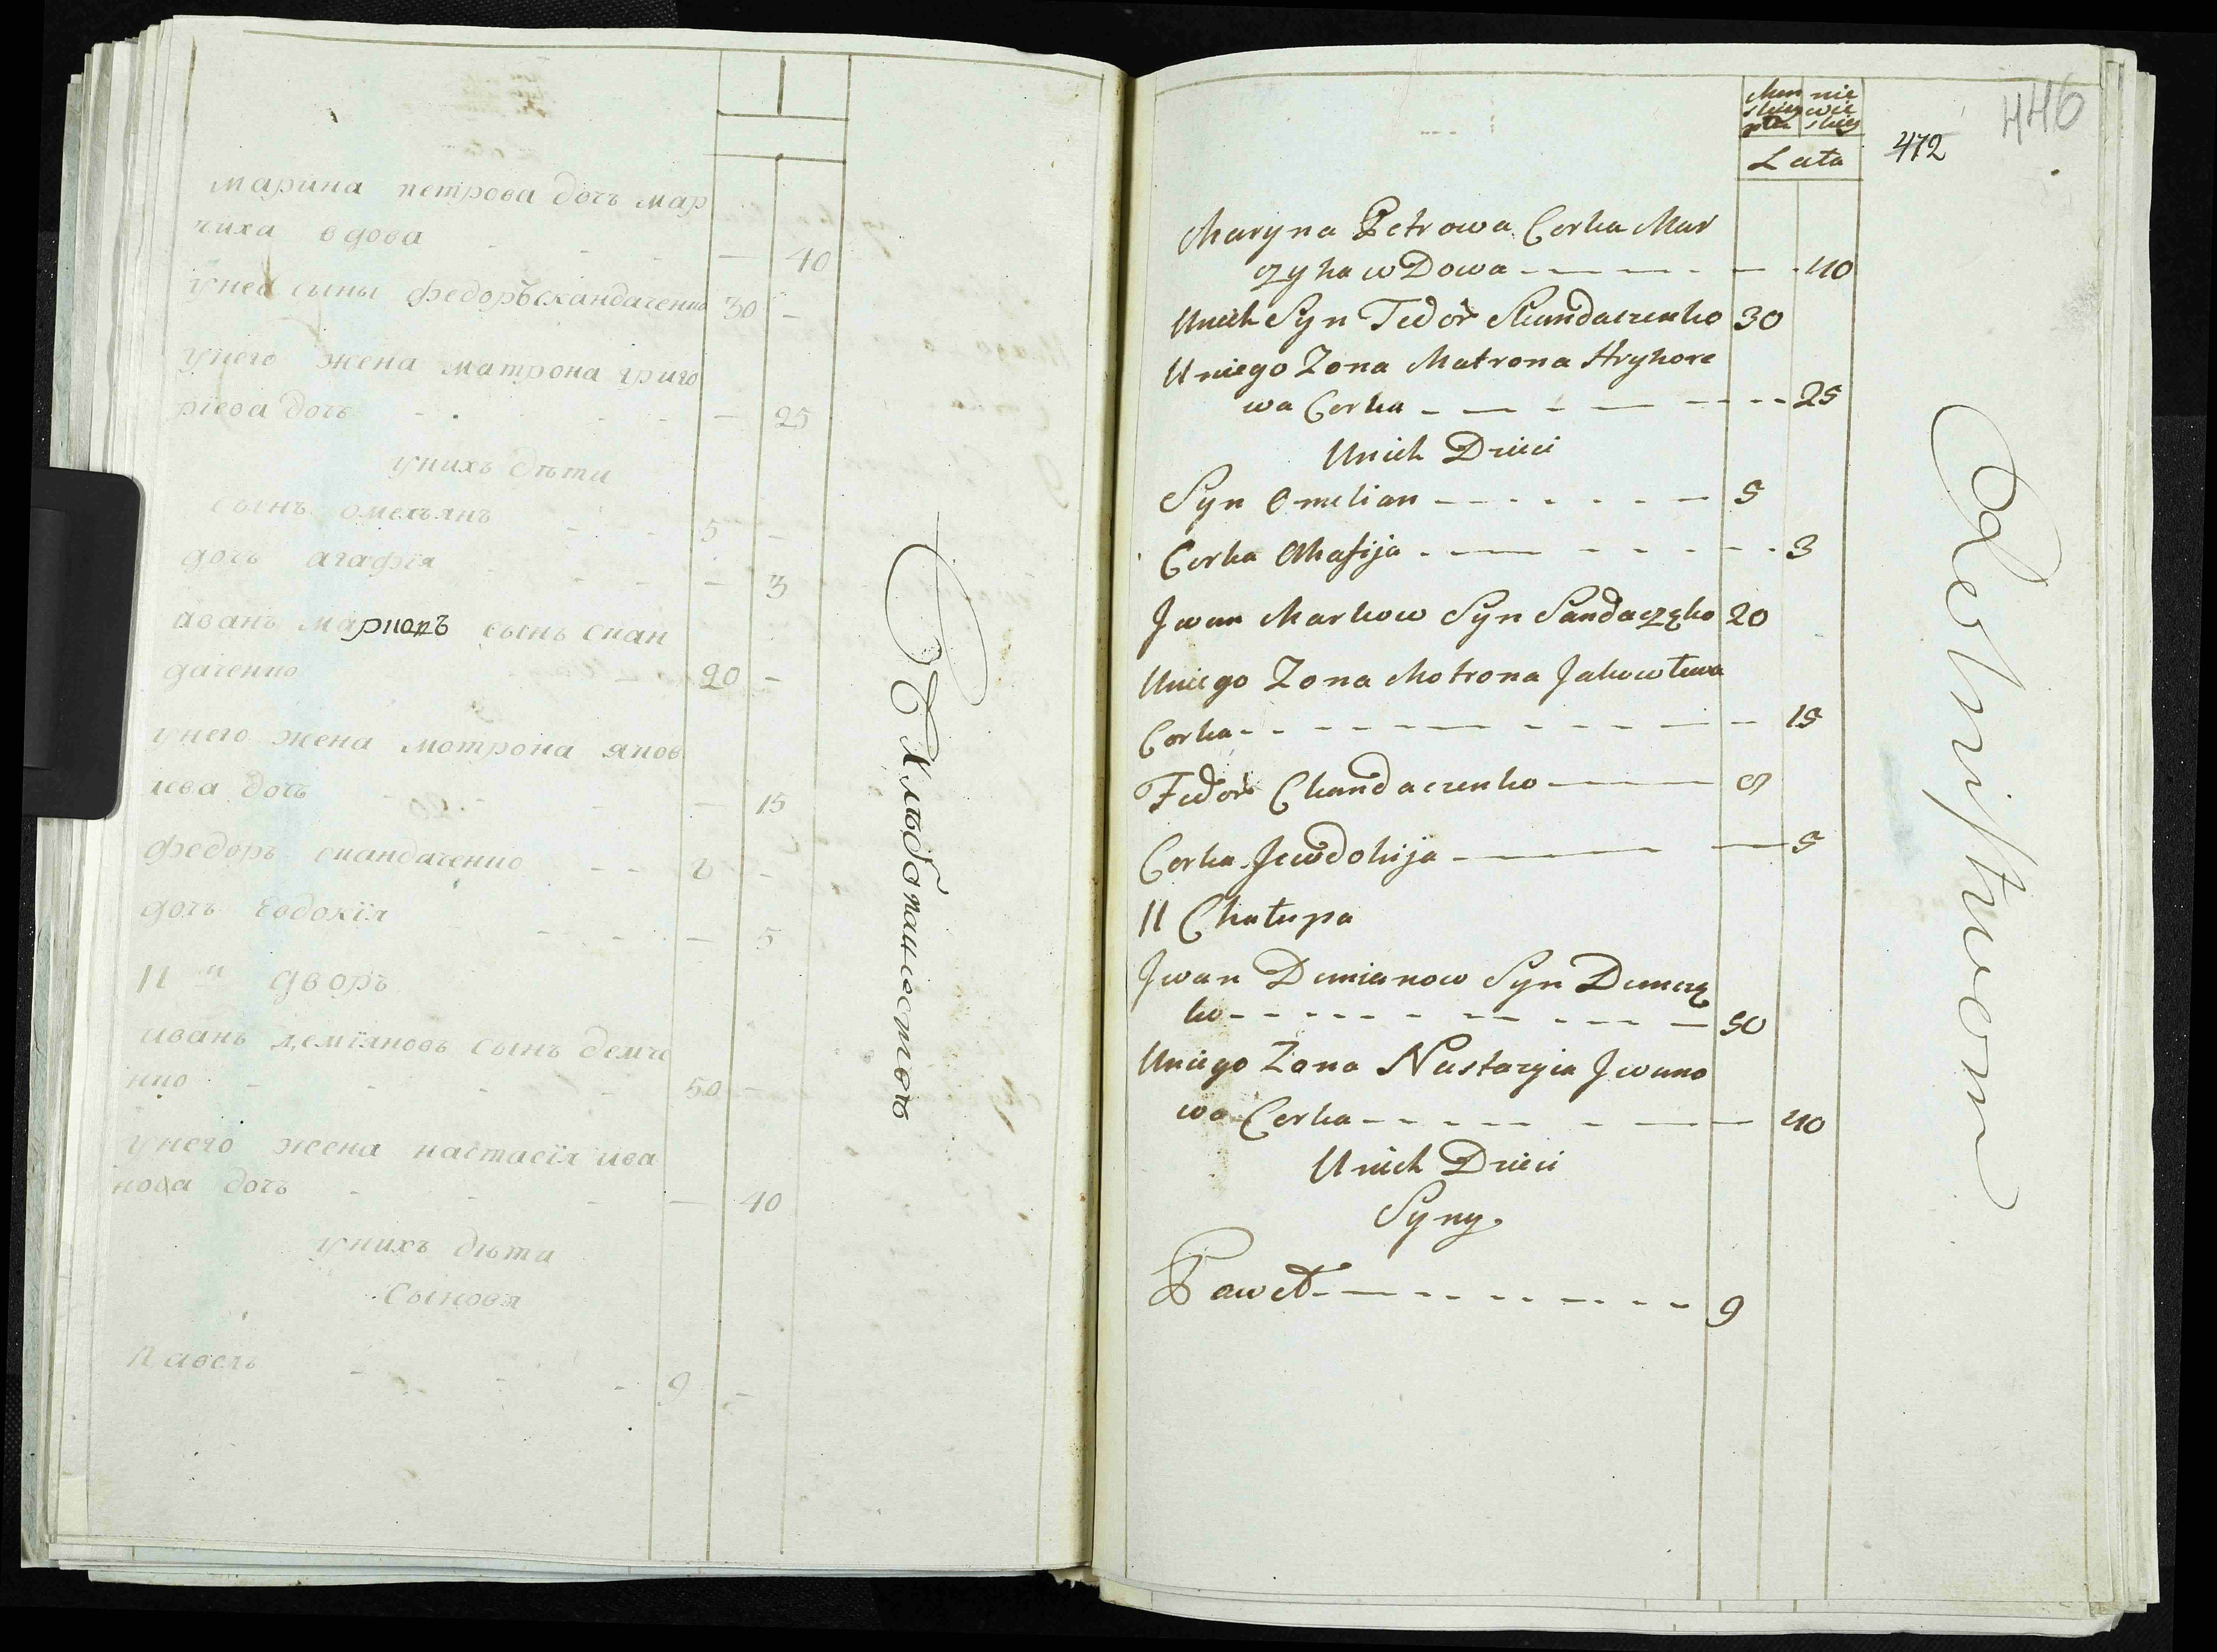 марина петрова дочъ мар
чиха вдова - - - - 40
унея сыны федоръ скандаченко 30 -
унего жена матрона григо
рієва дочъ - - - - 25
унихъ дѣти
сынъ омелъянъ - - 5 -
дочъ агафія - - - 3
иванъ марковъ сынъ скан
даченко 20 -
унего жена мотрона яков
лева дочъ - - - 15
федоръ скандаченко - - 8 -
дочъ Евдокїя - - - - 5
11 й дворъ
иванъ демїяновъ сынъ демче
нко - - - - 50 -
унего жена настасїя ива
нова дочъ - - - - 40
унихъ дѣти
Сыновя
Павелъ - - - 9 -
Męz nie
skiey wie
płci skiey
Lata
472
446
Maryna Petrowa Corka Mar
czyha wDowa - - - - - 40
Unieh Syn Fedor Skandaczenko 30
Uniego Zona Matrona Hryhore
wa Corka - - - - - - - 25
Unich Dzieci
Syn Omelian - - - - - - 5
Corka Ahafija - - - - - - - 3
Jwan Markow Syn Sandaczęko 20
Uniego Zona Motrona Jakowlewa
Corka - - - - - - - - - 15
Fedor Ckandaczenko - 8
Corka Jewdokija - - 5
11 Chałupa
Jwan Demianow Syn Demczę
ko - - - - - - - - - 50
Uniego Zona Nastazyia Jwano
wa Corka - - - - - - - 40
Unich Dzieci
Syny.
Paweł - - - - - - - - 9